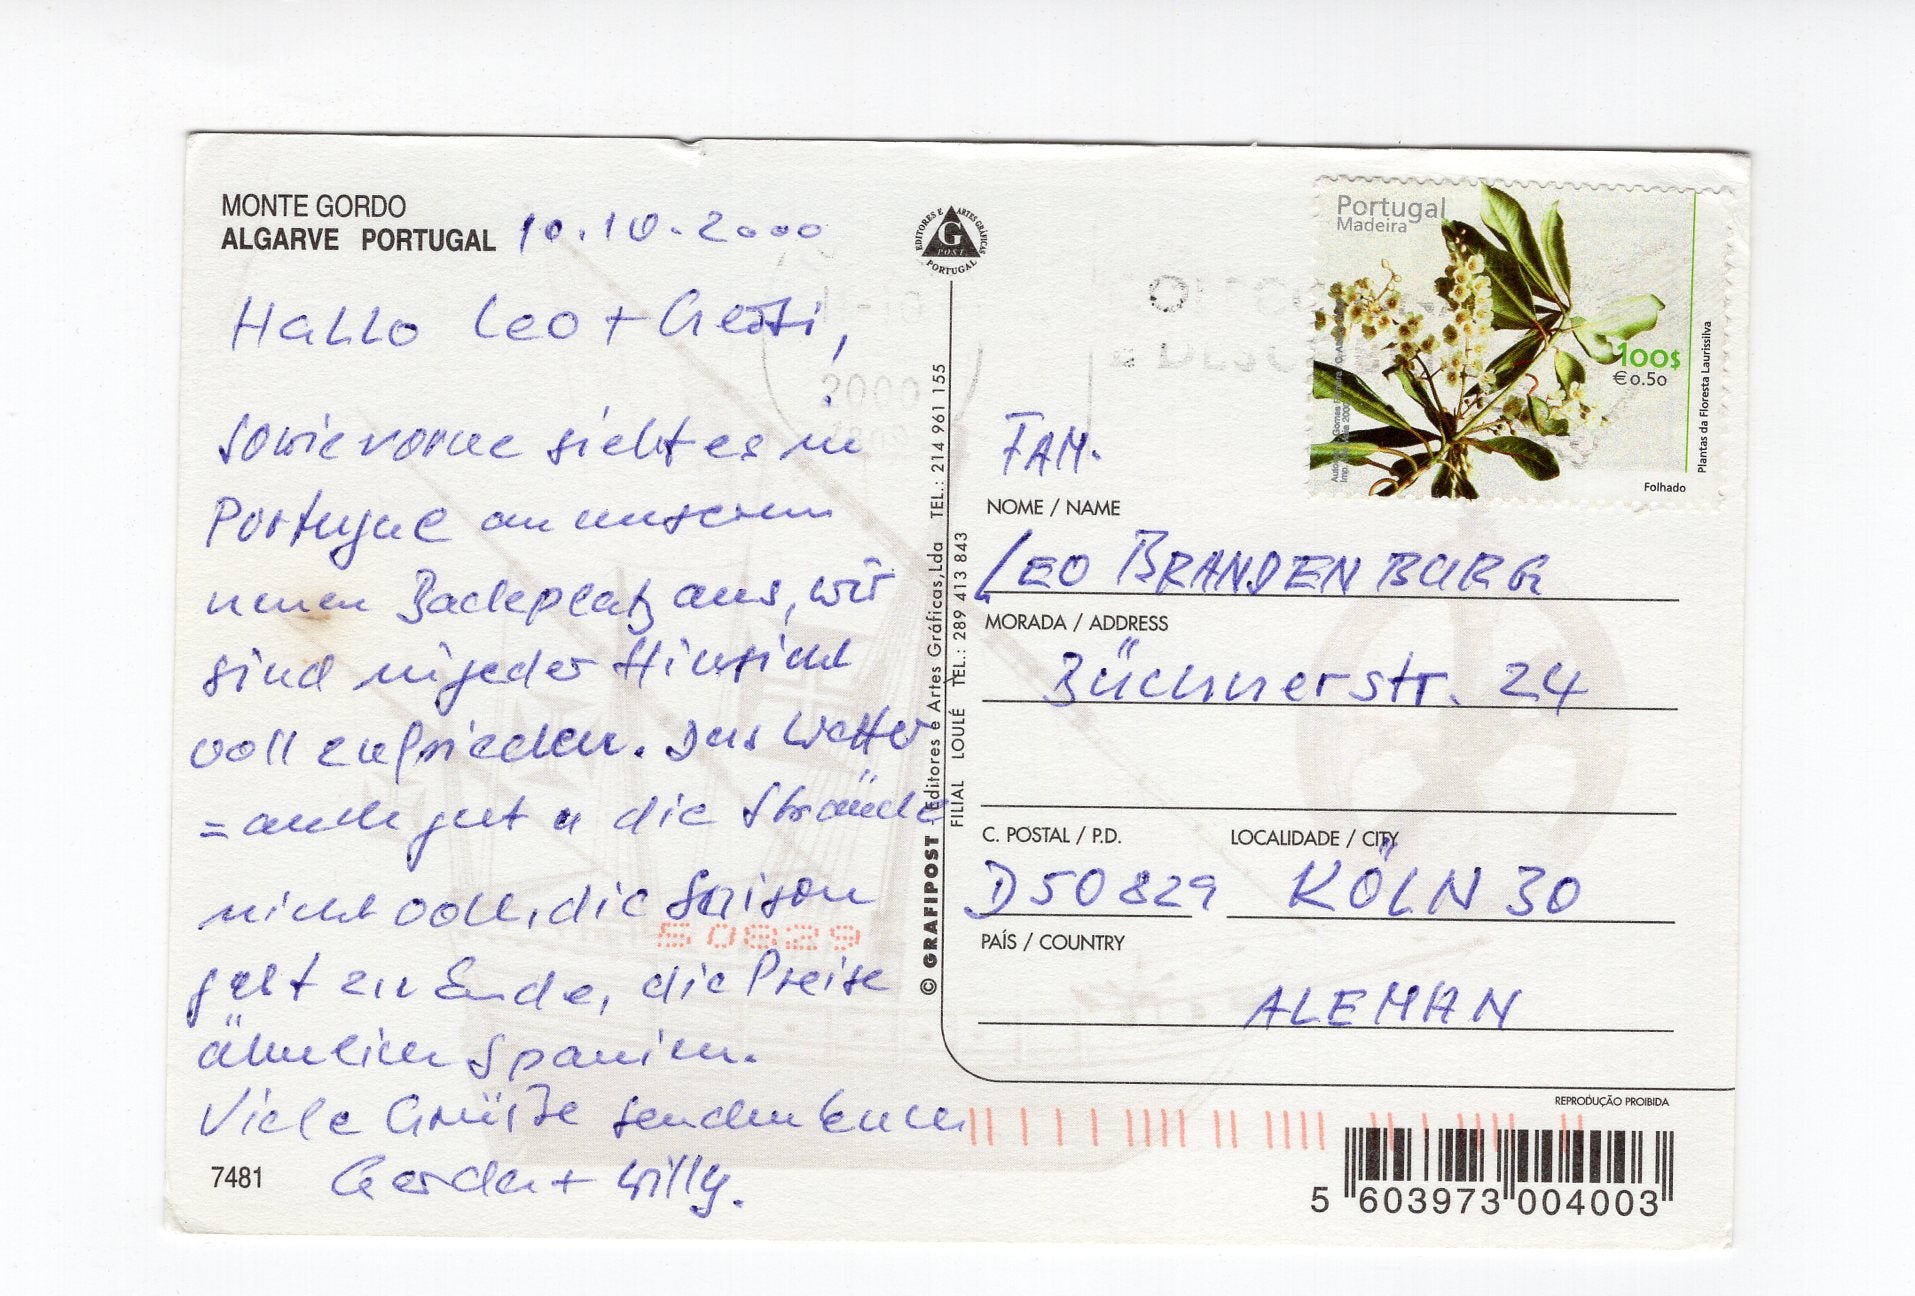 MONTE GORDO
ALGARVE PORTUGAL 10.10.2000
Hallo Leo + Gerti,
sowie vorne sieht es in
Portugal an unserem
neuen Badeplatz aus, wir
sind in jeder Hinsicht
voll zufrieden. Das Wetter
= auch gut u die Strände
nicht voll, die Saison
geht zu Ende, die Preise
ähnlich Spanien.
Viele Grüße senden Euch
Gerda + Willy.
7481
50829
EDITORES E ARTES GRÁFICAS
G
POST
PORTUGAL
2000
© GRAFIPOST Editores e Artes Gráficas,Lda TEL.: 214 961 155
FILIAL LOULÉ TEL.: 289 413 843
Portugal
Madeira
100$
€0.50
Plantas da Floresta Laurissilva
Folhado
FAM.
NOME / NAME
LEO BRANDENBURG
MORADA / ADDRESS
Büchnerstr. 24
C. POSTAL / P.D. LOCALIDADE / CITY
D50829 KÖLN 30
PAÍS / COUNTRY
ALEMAN
REPRODUÇÃO PROIBIDA
5 603973 004003